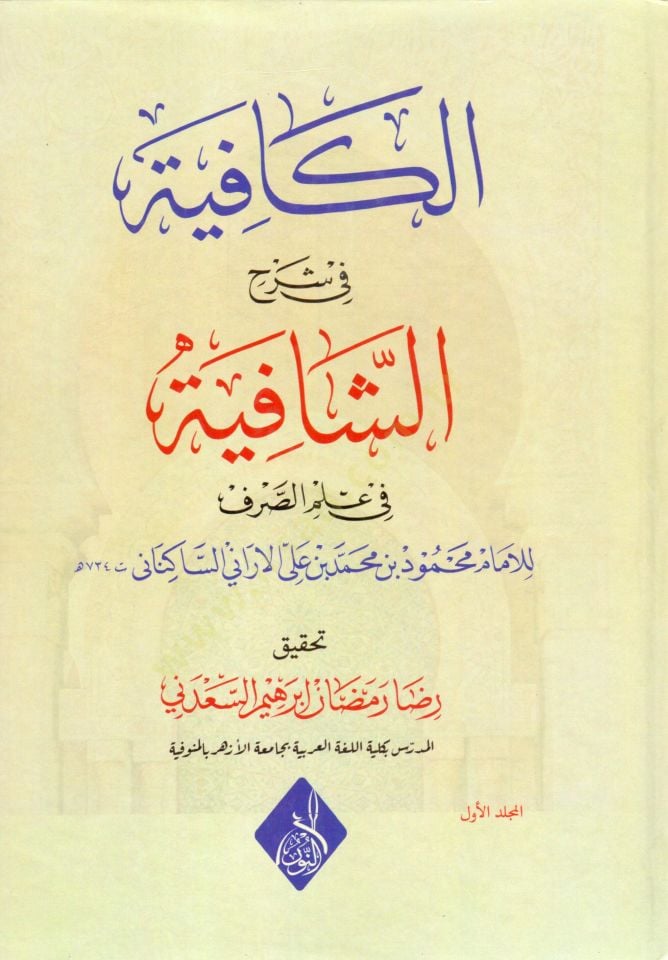 الكافية
في شرح
الشَّافِيَةُ
في علم الصَّرف
للامام محمود بن محمد بن علي الاراني الساكناني ت ٧٣٤هـ
تحقيق
رضا رمضان إبرهيم السعدني
المدرّس بكلية اللغة العربية بجامعة الأزهر بالمنوفية
المجلد الأول
النور